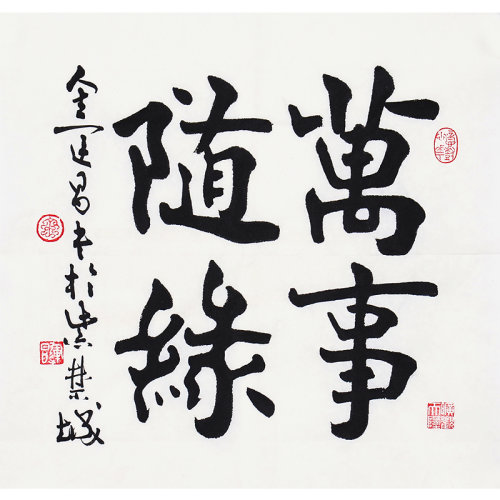 萬事
隨緣
金運昌书於紫禁城